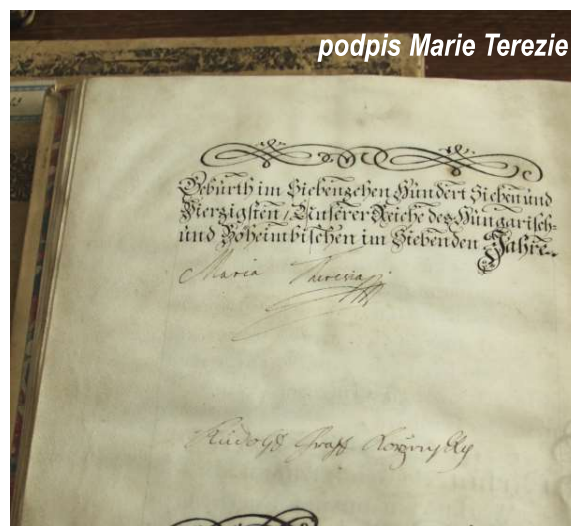 podpis Marie Terezie
Gebürth im Siebenzehen Hündert Sieben und
Vierzigsten / Unserer Reiche des Hungarisch-
und Böheimbischen im Siebenden Jahre.
Maria Theresia
Rudolph Graff Korzensky